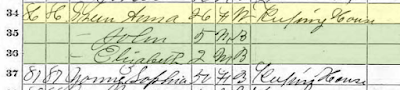 34 86 86 Green Anna 26 F W Keeping House
35 — John 5 M B
36 — Elizabeth 2 M B
37 87 87 Sophia 50 F B Keeping House